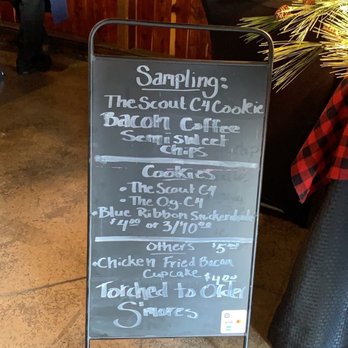 Sampling:
The Scout C4 Cookie
Bacon Coffee
Semi Sweet
Chips
Cookies
• The Scout C4
• The Og-C4
• Blue Ribbon Snickerdoodle
$4.00 or 3/$10.00
Others $5.00
• Chicken Fried Bacon
Cupcake $4.00
Torched to Order
S'mores